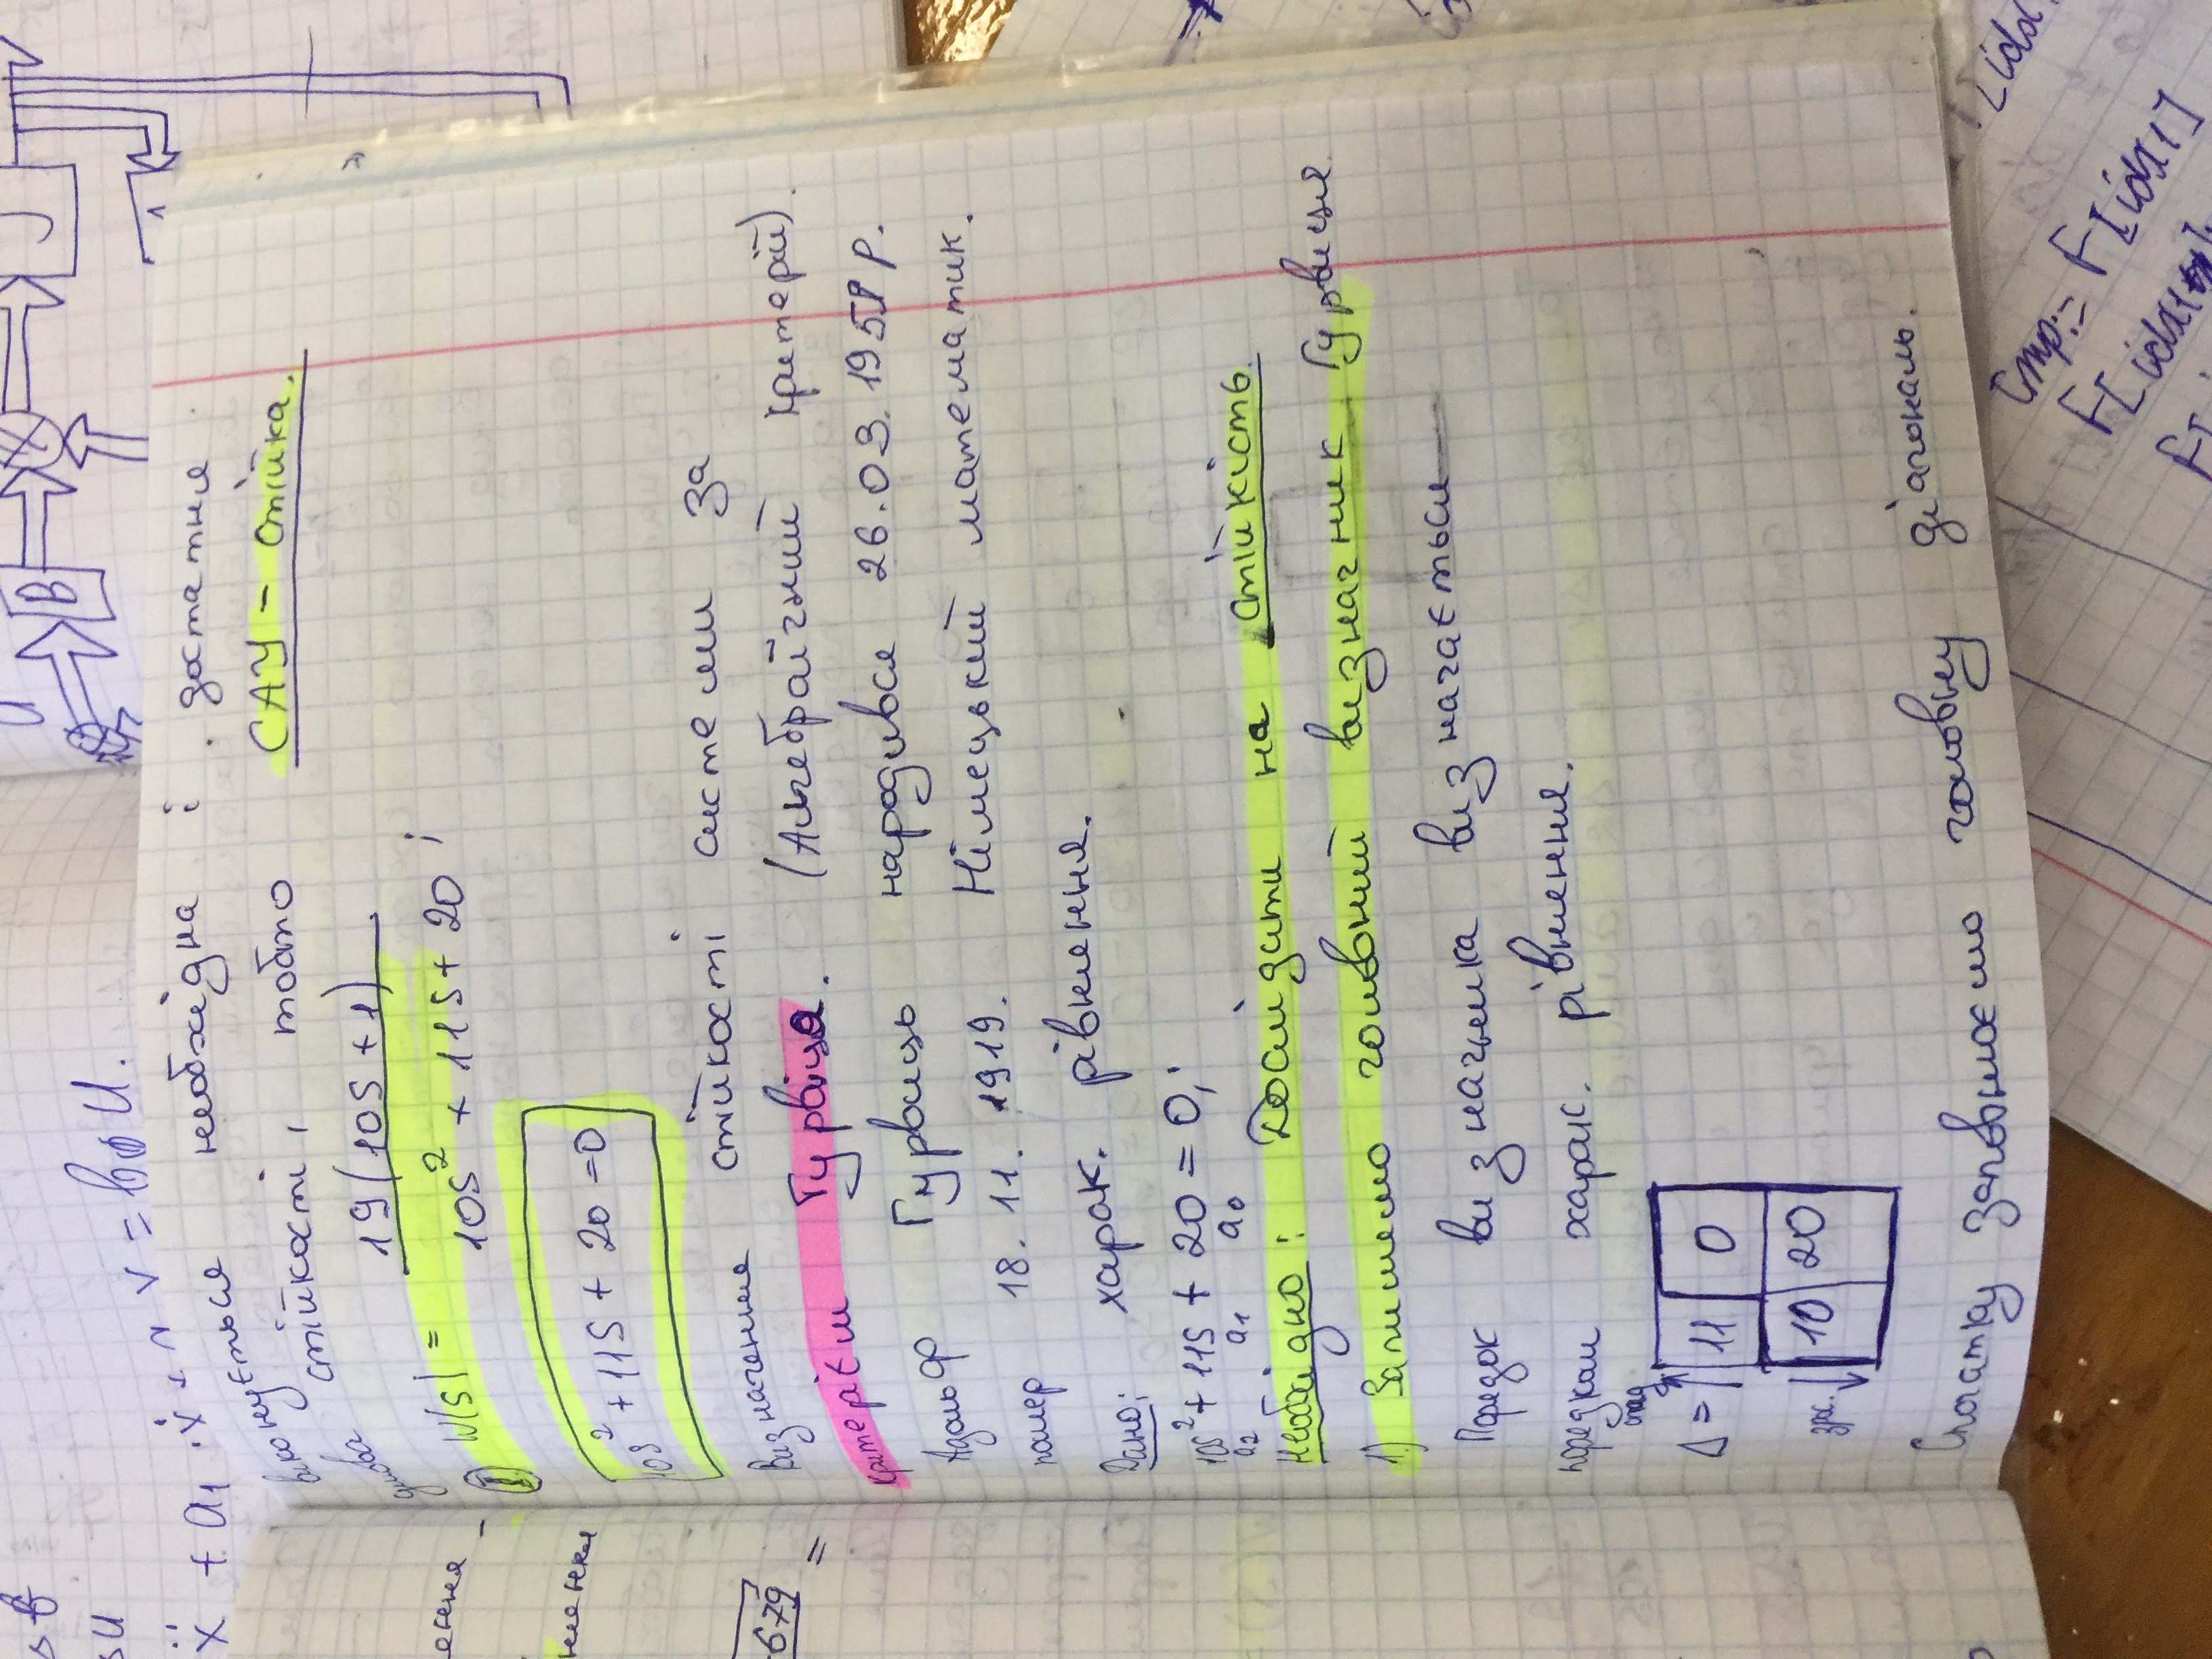 s в
su
ẍ + a₁ · ẋ +
= b₀ U.
B
виконується необхідна і достатня
умова стійкості, тобто САУ - стійка.
I W(s) = 19(10S + 1)
10S² + 11S + 20 ;
10S² + 11S + 20 = 0
Визначення стійкості системи за
критерієм Гурвіца. (Алгебраїчний критерій).
Адольф Гурвиць народився 26.03.1959 р.
помер 18.11.1919. Німецький математик.
Дано: харак. рівняння.
10S² + 11S + 20 = 0;
a₂ a₁ a₀
Необхідно: Дослідити на стійкість.
1) Запишемо головний визначник Гурвиця
Порядок визначника визначається
порядком харак. рівняння.
спад
Δ = 11 0
зрос. 10 20
Спочатку заповнюємо головну діагональ.
ення
679
=
Cmp:= F[idx1]
F[idx1